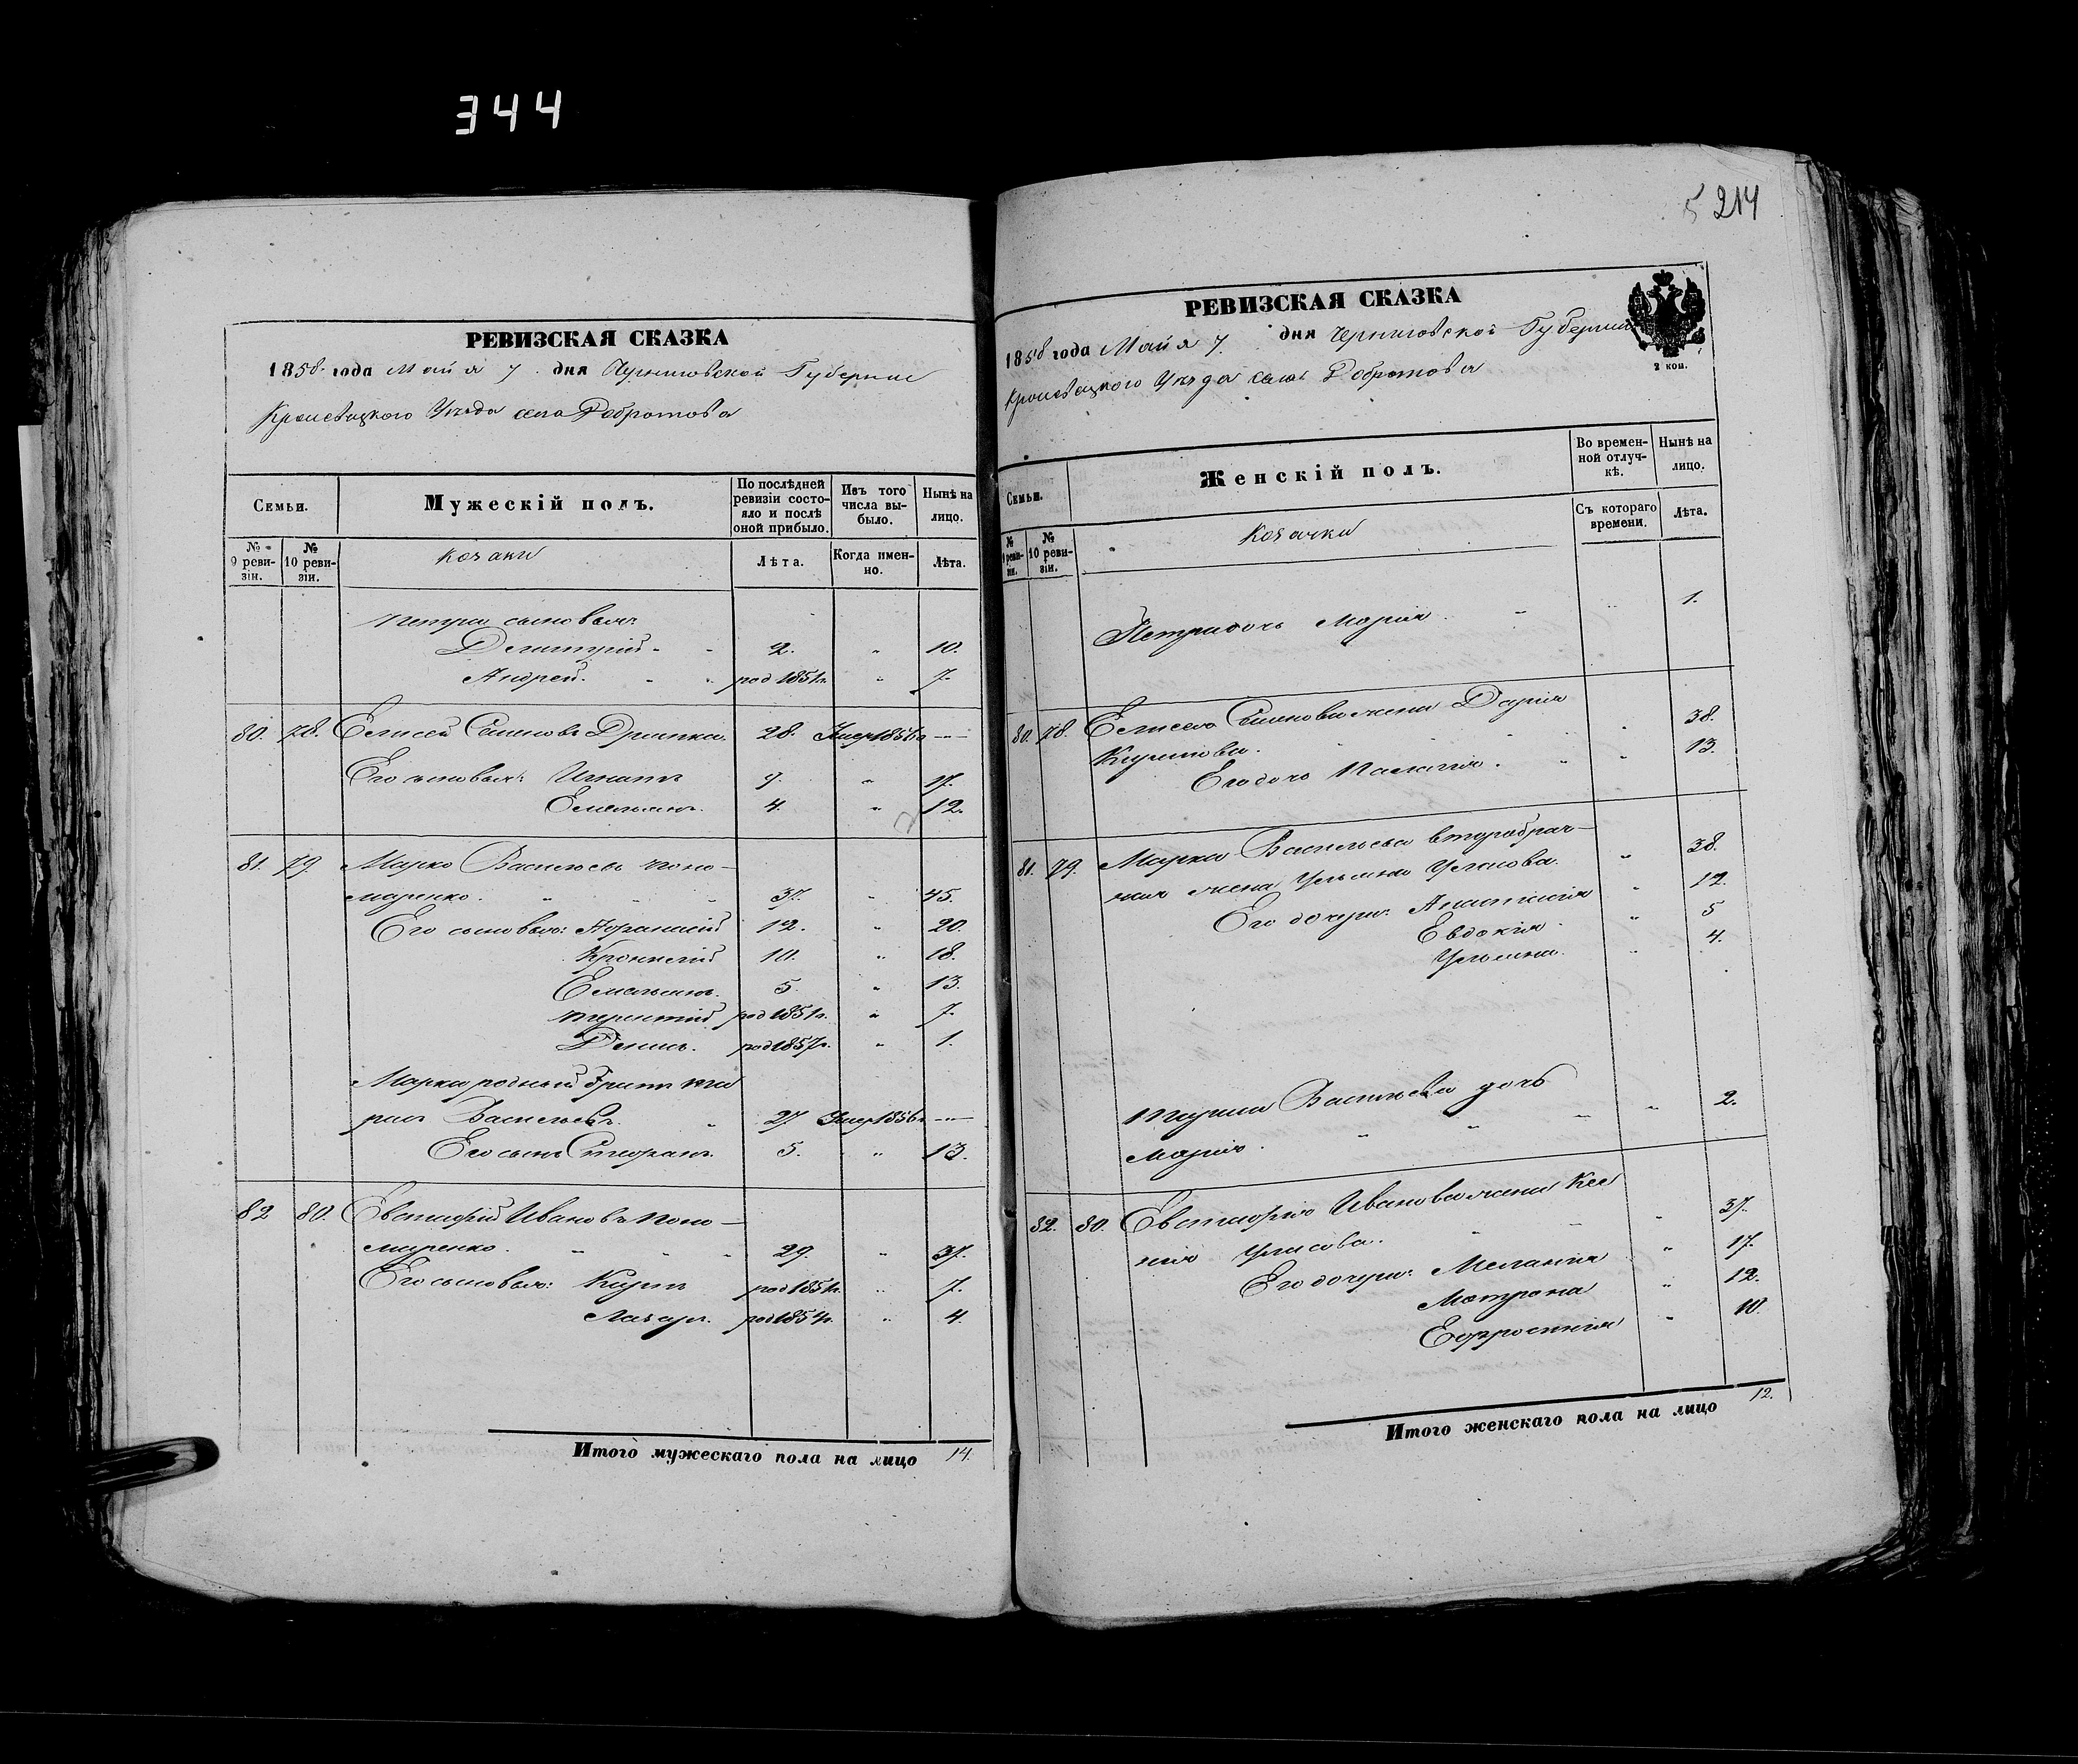 344
РЕВИЗСКАЯ СКАЗКА
1858 года Майя 7 дня Черниговской Губернии
Кролевецкого Уезда села Добротова
Семьи.
Мужескій полъ.
По послѣдней ревизіи состояло и послѣ оной прибыло.
Изъ того числа выбыло.
Нынѣ на лицо.
№ 9 ревизіи.
№ 10 ревизіи.
козаки
Лѣта.
Когда именно.
Лѣта.
Петра сыновья:
Димитрий 2. " 10.
Андрей род 1851г. " 7.
80. 78. Елисей Семеновъ 28. Умер 1856г. —
Его сыновья: Игнатъ 9 " 17.
Емельянъ. 4. " 12.
81. 79. Марко Васильевъ Поно-
маренко. 37. " 45.
Его сыновья: Афанасий 12. " 20.
10. " 18.
Емельянъ. 5. " 13.
Терентий род 1851г. " 7.
Денисъ. род 1857г. " 1.
Марка родный братъ Та
расъ Васильевъ. 27. Умер 1856г. —
Его сынъ Стефанъ. 5. " 13.
82 80. Евстафий Ивановъ Поно-
маренко. 29. " 37.
Его сыновья: Карпъ род 1851г. " 7.
Лазарь. род 1854г. " 4.
Итого мужескаго пола на лицо 14.
214
РЕВИЗСКАЯ СКАЗКА
1858 года Майя 7. дня Черниговской Губернии
2 коп.
Кролевецкого Уезда села Добротова
Семьи.
Женскій полъ.
Во временной отлучкѣ.
Нынѣ на лицо.
№ 9 ревизіи.
№ 10 ревизіи.
Козачки
Съ котораго времени.
Лѣта.
Петра дочь Мария 1.
80. 78. Елисея Семенова жена Дария
38.
Его дочь Палагия. 13.
81. 79. Марка Васильева второбрач-
ная жена Ульяна 38.
Его дочери: Анастасия 12.
Евдокия 5
Ульяна. 4.
Тараса Васильева дочь
Мария. 2.
82. 80. Евстафия Иванова жена Ксе
ния 37.
Его дочери: Мелания 17.
Матрона 12.
Ефросиния 10.
Итого женскаго пола на лицо 12.